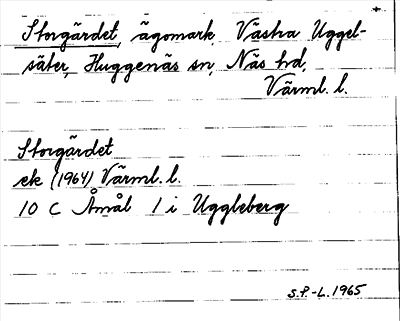 Storgärdet, ägomark, Västra Uggel-
säter, Huggenäs sn, Näs hd,
Värml. l.
Storgärdet
ek (1964) Värml. l.
10 C Åmål 1 i Uggleberg
S.P.-L. 1965